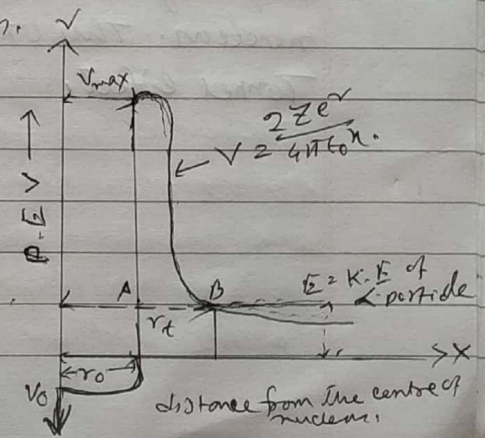 n. V
Vmax
V = 2Ze²/4πε₀x.
P.E V →
A
B
E = K.E of
α-particle
r_t
r₀
X
V₀
distance from the centre of
nucleus.